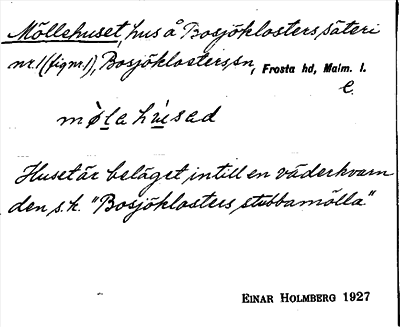 Möllehuset, hus å Bosjöklosters säteri
nr. 1 (fig nr. 1), Bosjöklosters sn, Frosta hd, Malm. l.
e.
møla hu̇sad
Huset är beläget intill en väderkvarn
den s.k. "Bosjöklosters stubbamölla"
EINAR HOLMBERG 1927